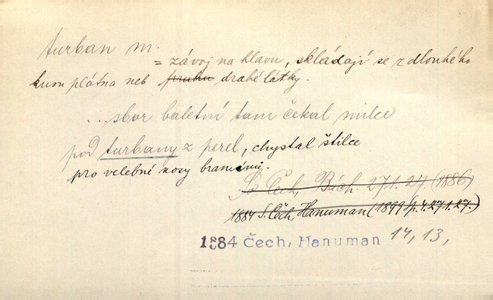 turban m.
= závoj na hlavu, skládají se z dlouhého
kusu plátna neb pruhu drahé látky.
... sbor baletní tam čekal milce
pod turbany z perel, chystal štilce
pro velebné nosy braménů.
Sv. Čech, Bách. 271.27 (1886)
1884 S. Čech, Hanuman (1899) p. 4.271.27.
1884 Čech, Hanuman 14, 13,